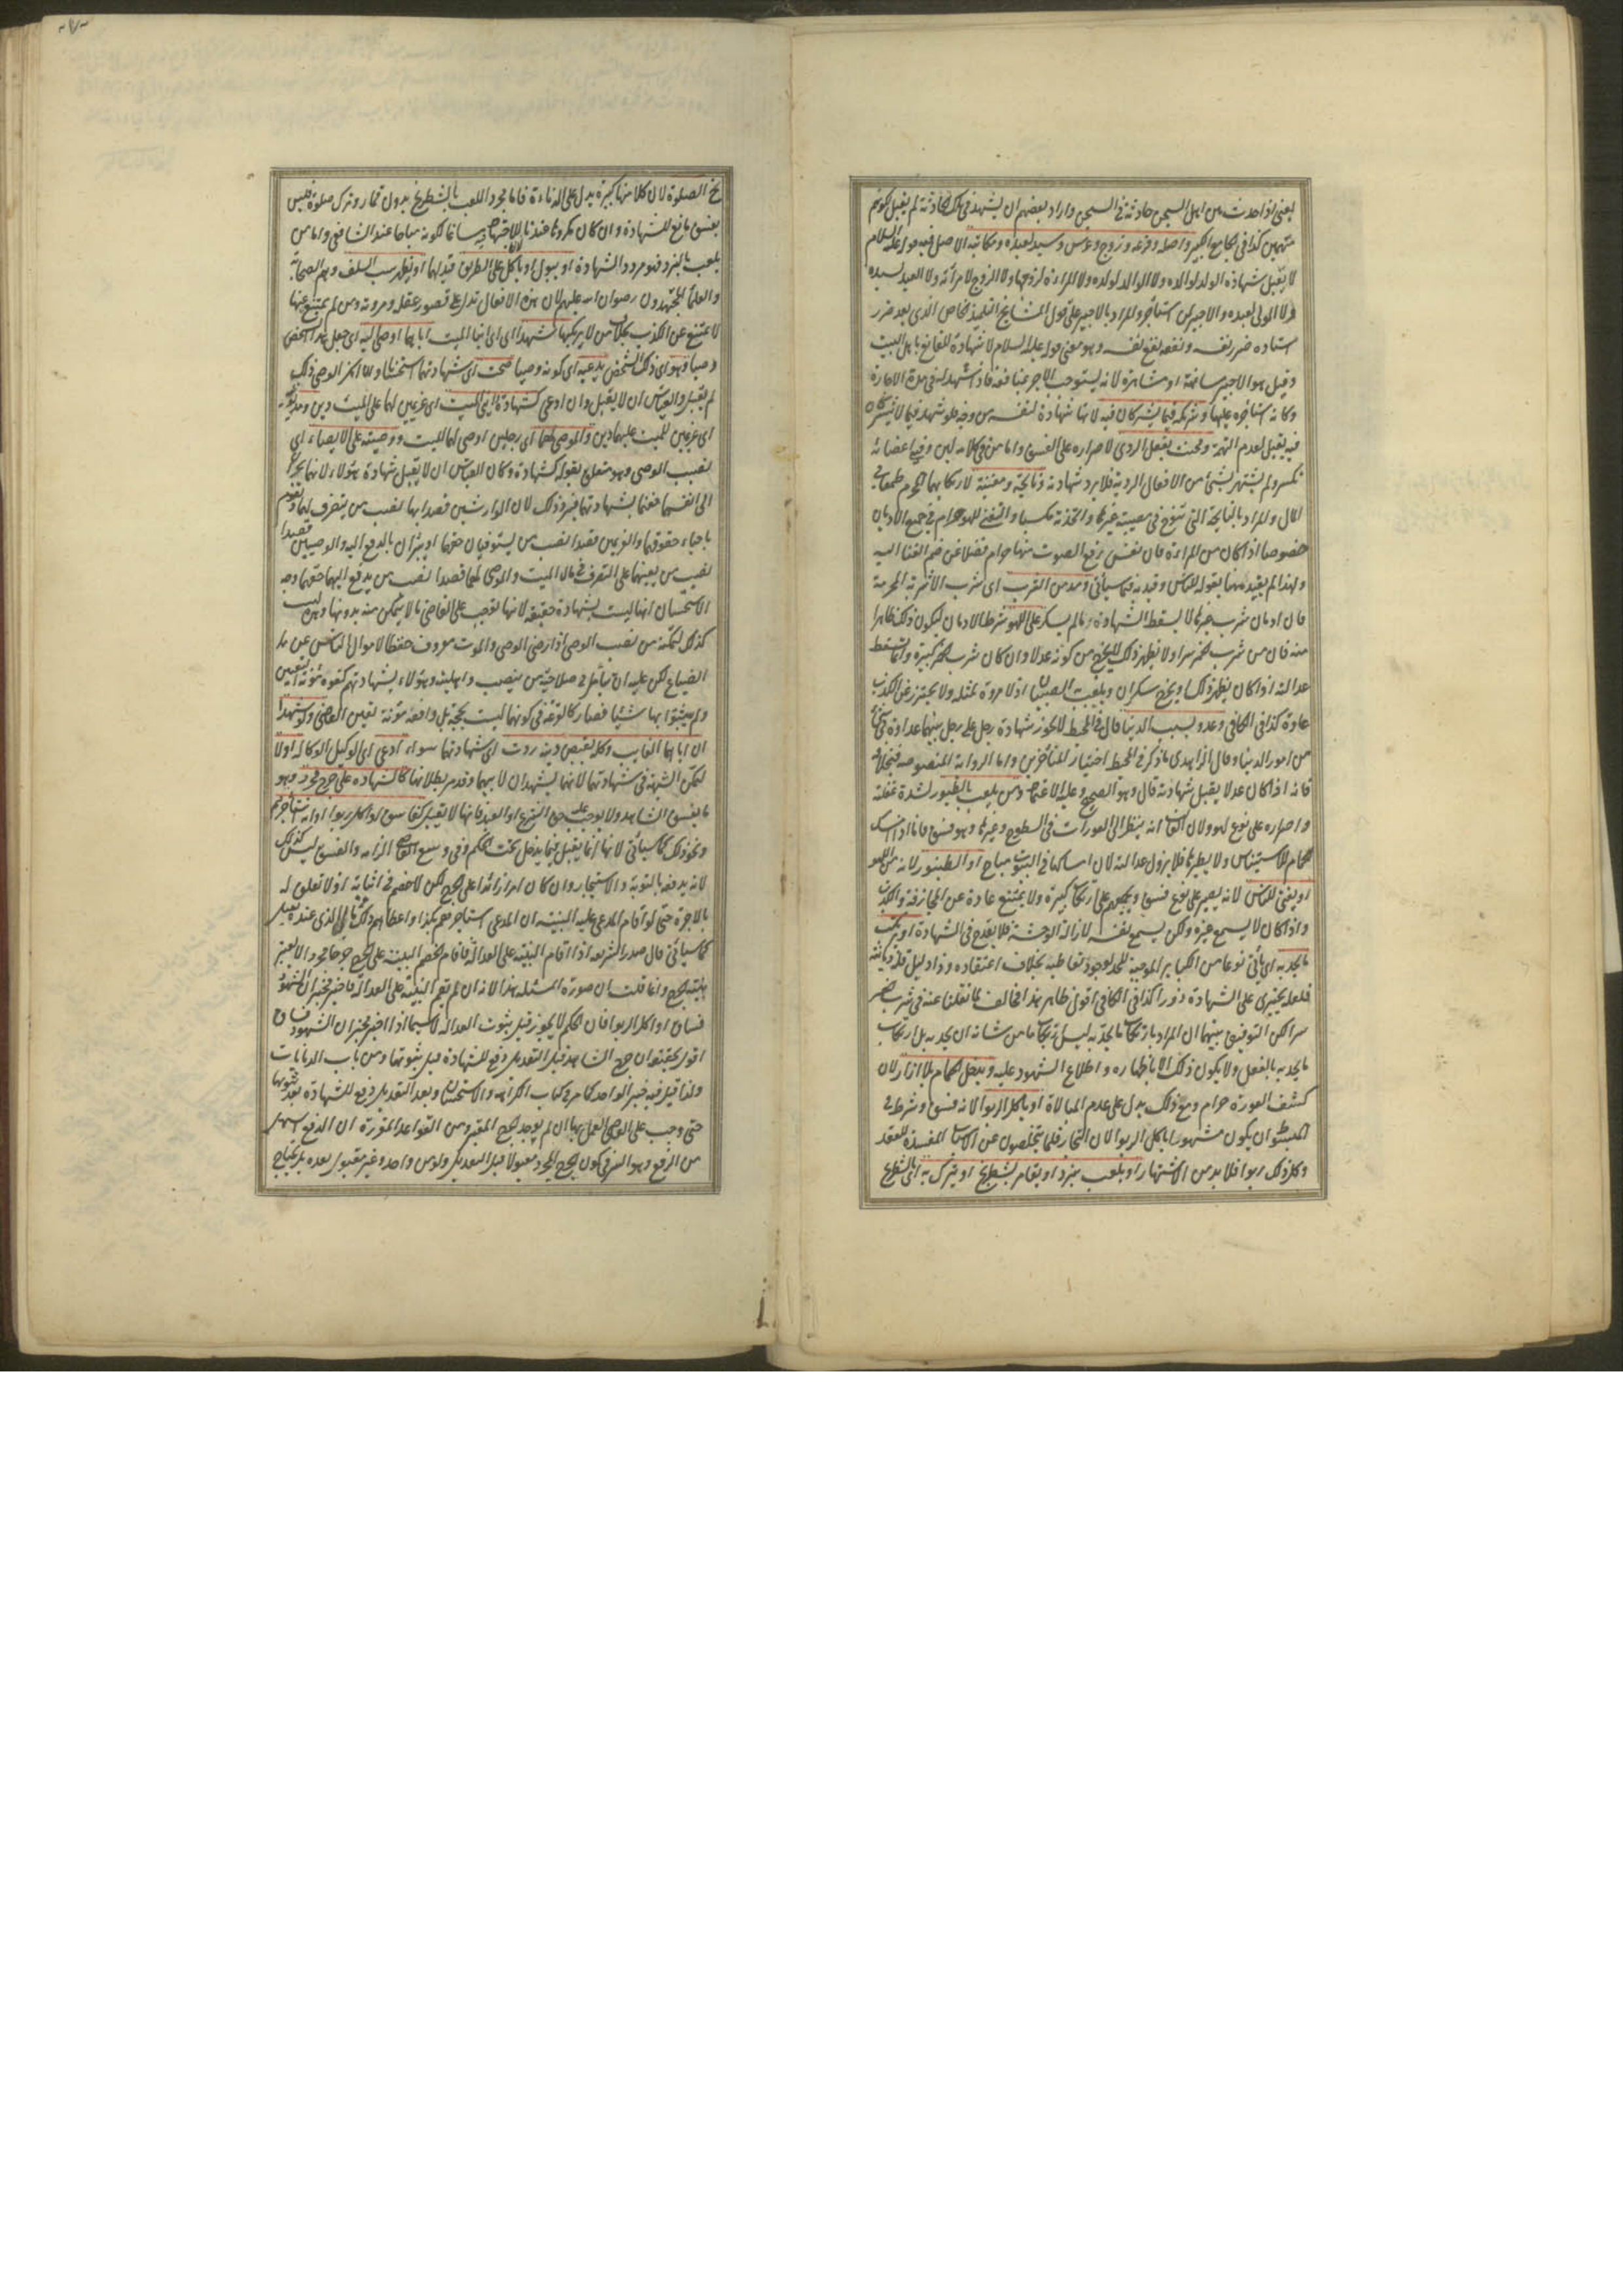 يعنى اذا حدث بين اهل السجن حادثة فى السجن واراد بعضهم ان يشهد فى تلك الحادثة لم يقبل لكونهم
متهمين كذا فى الجامع الكبير واصله وفرعه وزوج وعرس وسيد لعبده ومكاتبه الاصل فيه قوله عليه السلام
لا يقبل شهادة الولد لوالده ولا الوالد لولده ولا المراءة لزوجها ولا الزوج لامرأته ولا العبد لسيده
ولا المولى لعبده ولا الاجير لمن استأجره والمراد بالاجير على قول المشايخ التلميذ الخاص الذى يعد ضرر
استاده ضرر نفسه ونفعه نفع نفسه وهو معنى قوله عليه السلام لا شهادة للقانع باهل البيت
وقيل هو الاجير مسانهة او مشاهرة لانه يستوجب الاجر بمنافعه فاذا شهد له فى مدة الاجارة
وكانه استأجره عليها وشريكه فيما يشتركان فيه لانها شهادة لنفسه من وجه فلو شهد فيما لا يشتركان
فيه يقبل لعدم التهمة ومخنث يفعل الردى لاصراره على الفسق واما من فى كلامه لين وفى اعضائه
تكسر ولم يشتهر بشئ من الافعال الردية فلا يرد شهادته ونايحة ومغنية لارتكابهما المحرم طمعا فى
المال والمراد بالنايحة التى تنوح فى مصيبة غيرها واتخذته مكسبا والتغنى للهو حرام فى جميع الاديان
خصوصا اذا كان من المراءة فان نفس رفع الصوت منها حرام فضلا عن ضم الغنا اليه
ولهذا لم يقيد هنا بقوله للناس وقيد به فيما سيأتى ومدمن الشرب اى شرب الاشربة المحرمة
فان ادمان شرب غيرها لا يسقط الشهادة ما لم يسكر على اللهو شرط الادمان ليكون ذلك ظاهرا
منه فان من شرب الخمر سرا ولا يظهر ذلك لا يخرج من كونه عدلا وان كان شرب الخمر كبيرة وانما تسقط
عدالته اذا كان يظهر ذلك او يخرج سكران ويلعب به الصبيان اذ لا مروة لمثله ولا يحترز عن الكذب
عادة كذا فى الكافى وعدو بسبب الدنيا قال فى المحيط لا تجوز شهادة رجل على رجل بينهما عداوة فى شئ
من امور الدنيا وقال الزاهدى ما ذكر فى المحيط اختيار المتأخرين واما الرواية المنصوصة فبخلافه
فانه اذا كان عدلا يقبل شهادته قال وهو الصحيح وعليه الاعتماد ومن يلعب بالطيور لشدة غفلته
واصراره على نوع لهو ولان الغالب انه ينظر الى العورات فى السطوح وغيرها وهو فسق فاما اذا امسك
الحمام للاستيناس ولا يطيرها فلا يزول عدالته لان امساكها فى البيوت مباح او الطنبور لانه من اللهو
او يغنى للناس لانه يصير على نوع فسق ويجمعهم على ارتكاب كبيرة ولا يمتنع عادة عن المجازفة والكذب
واذا كان لا يسمع غيره ولكن يسمع نفسه لازالة الوحشة فلا يقدح فى الشهادة او يرتكب
ما يحد به اى يأتى نوعا من الكبائر الموجبة للحد لوجود تعاطيه بخلاف اعتقاده وذا دليل قلة ديانته
فلعله يجترى على الشهادة زورا كذا فى الكافى اقول ظاهر هذا مخالف لما نقلنا عنه فى شرب الخمر
سرا لكن التوفيق بينهما ان المراد بارتكاب ما يحد به ليس ارتكاب ما من شانه ان يحد به بل ارتكاب
ما يحد به بالفعل ولا يكون ذلك الا باظهاره واطلاع الشهود عليه ويدخل الحمام بلا ازار لان
كشف العورة حرام ومع ذلك يدل على عدم المبالاة او ياكل الربوا لانه فسق وشرط فى
المبسوط ان يكون مشهورا باكل الربوا لان التجار قلما يتخلصون عن الاسباب المفسدة للعقد
وكل ذلك ربوا فلا بد من الاشتهار او يلعب بنرد او يقامر بشطرنج او يترك به اى بالشطرنج
الصلوة لان كلا منها كبيرة يدل على الدناءة فاما مجرد اللعب بالشطرنج بدون قمار وترك صلوة فليس
بفسق مانع للشهادة وان كان مكروها عندنا للاجتهاد فيه مساغا لكونه مباحا عند الشافعى واما من
يلعب بالنرد فهو مردود الشهادة او يبول او ياكل على الطريق قيد لهما او يظهر سب السلف وهم الصحابة
والعلماء المجتهدون رضوان الله عليهم لان هذه الافعال تدل على قصور عقله ومروته ومن لم يمتنع عنها
لا يمتنع عن الكذب بخلاف من لا يرتكبها شهدا اى ابنا الميت ان اباهما اوصى اليه اى جعل هذا الشخص
وصيا وهو اى ذلك الشخص يدعيه اى كونه وصيا صحت اى شهادتهما استحسانا وان انكر الوصى ذلك
لم يقبل والقياس ان لا يقبل وان ادعى كشهادة دائنى الميت اى غريمين لهما على الميت دين ومديونيه
اى غريمين للميت عليهما دين والموصى لهما اى رجلين اوصى لهما الميت ووصيته على الايصاء اى
نصب الوصى وهو متعلق بقوله كشهادة وكان القياس ان لا يقبل شهادة هؤلاء لانهما يجران
الى انفسهما مغنما بشهادتهما فترد وذلك لان الوارثين قصدا بها نصب من يتصرف لهما ويقوم
باحياء حقوقهما والغريمين قصدا نصب من يستوفيان حقهما او يبرئان بالدفع اليه والوصيين قصدا
نصب من يعينهما على التصرف فى مال الميت والموصى لهما قصدا نصب من يدفع اليهما حقهما وجه
الاستحسان انها ليست بشهادة حقيقة لانها توجب على القاضى ما لا يتمكن منه بدونها وهذه ليست
كذلك لتمكنه من نصب الوصى اذا رضى الوصى والموت معروف حفظا لاموال الناس عن
الضياع لكن عليه ان يتأمل فى صلاحية من ينصب واهليته وهؤلاء بشهادتهم كفوه مؤنة التعيين
ولم يثبتوا بها شيئا فصار كالقرعة فى كونها ليست بحجة بل دافعة مؤنة تعيين القاضى ولو شهدا
ان اباهما الغايب وكله بقبض دينه ردت اى شهادتهما سواء ادعى اى الوكيل الوكالة او لا
لتمكن الشبهة فى شهادتهما لانهما يشهدان لابيهما وقد مر بطلانها كالشهادة على جرح مجرد وهو
ما يفسق الشاهد ولا يوجب عليه حق الشرع او العبد فانها لا تقبل كفاسق او اكل ربوا او انه استأجرهم
ونحو ذلك كما سيأتى لانها انما يقبل فيما يدخل تحت الحكم وفى وسع القاضى الزامه والفسق ليس كذلك
لانه يدفعه بالتوبة والاستيجار وان كان امرا زائدا على الجرح لكن لا خصم فى اثباته اذ لا تعلق له
بالاجرة حتى لو اقام المدعى عليه البينة ان المدعى استاجرهم بكذا واعطاهم ذلك مما لى الذى عنده يقبل
كما سيأتى قال صدر الشريعة اذا اقام البينة على العدالة فاقام الخصم البينة على الجرح جرحا مجردا لا يعتبر
بينة الجرح وانما قلت ان صورة المسئلة هذا لانه ان لم يقم البينة على العدالة فاخبر مخبران ان الشهود
فساق او اكلوا الربوا فان الحكم لا يجوز قبل ثبوت العدالة لا سيما اذا اخبر مخبران ان الشهود فساق
اقول تحقيقه ان جرح الشاهد قبل التعديل دفع للشهادة قبل ثبوتها ومن باب الديانات
ولذا قبل فيه خبر الواحد كما مر فى كتاب الكراهية والاستحسان وبعد التعديل رفع للشهادة بعد ثبوتها
حتى وجب على القاضى العمل بها ان لم يوجد الجرح المعتبر ومن القواعد المقررة ان الدفع اسهل
من الرفع وهو السر فى كون الجرح المجرد مقبولا قبل التعديل ولو من واحد وغير مقبول بعده بل يحتاج